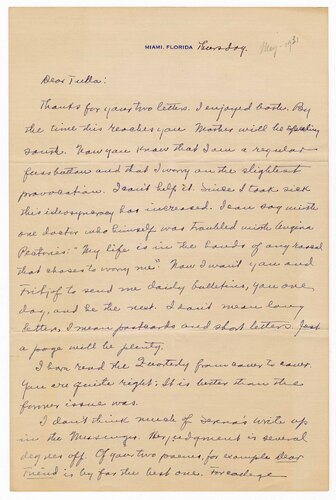 MIAMI, FLORIDA
Thursday.
May - 1931
Dear Tulla:
Thanks for your two letters. I enjoyed both. By
the time this reaches you Mother will be
south. Now you know that I am a regular
fussbutton and that I worry on the slightest
provocation. I can't help it. Since I took sick
this ideosyncracy has increased. I can say with
one doctor who himself was troubled with Angina
Pectoris: "My life is in the hands of any rascal
that choses to worry me". Now I want you and
to send me daily bulletins, you one
day, and he the next. I don't mean long
letters, I mean postcards and short letters. Just
a page will be plenty.
I have read the Quarterly from cover to cover.
You are quite right. It is better than the
former issue was.
I don't think much of write up
in the Messenger. Her judgment is several
degrees off. Of your two poems, for example Dear
Friend is by far the best one. For cadence